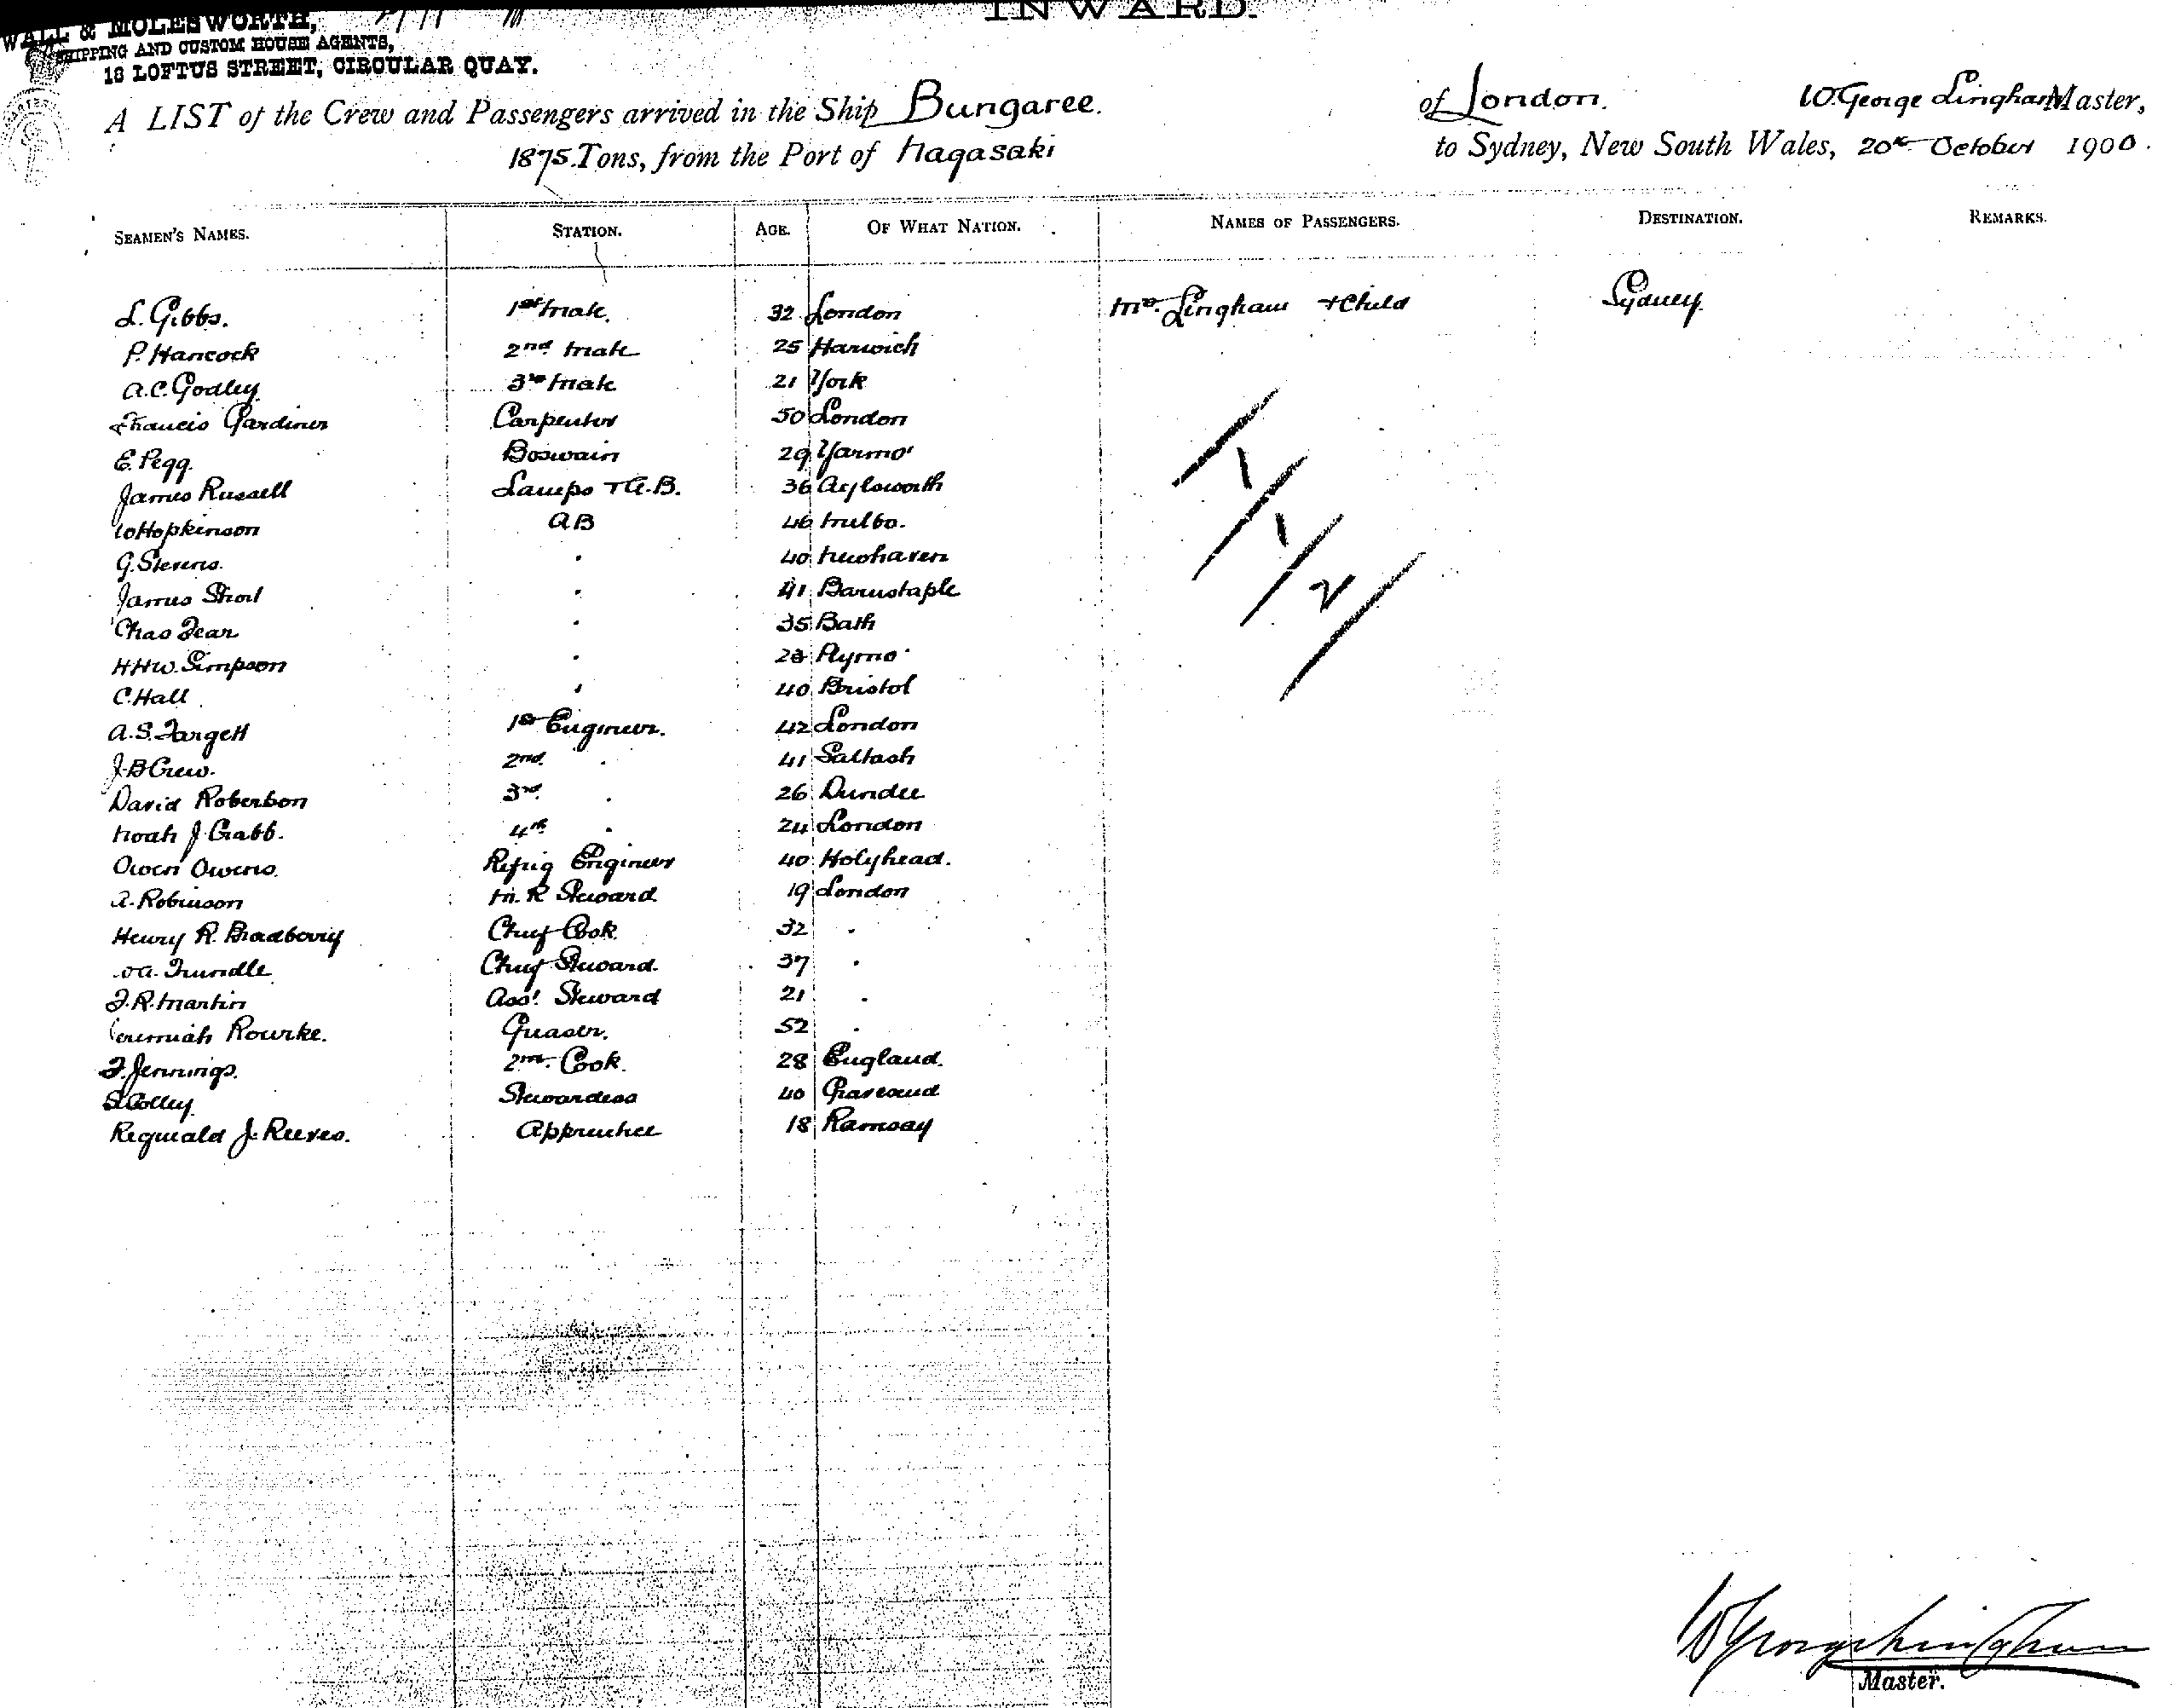 INWARD.
WALL & MOLESWORTH,
SHIPPING AND CUSTOM HOUSE AGENTS,
18 LOFTUS STREET, CIRCULAR QUAY.
A LIST of the Crew and Passengers arrived in the Ship Bungaree. of London. W. George Lingham Master,
1875 Tons, from the Port of Nagasaki to Sydney, New South Wales, 20th October 1900.
SEAMEN'S NAMES. STATION. AGE. OF WHAT NATION. NAMES OF PASSENGERS. DESTINATION. REMARKS.
L. Gibbs. 1st Mate. 32 London Mrs. Lingham + Child Sydney
P. Hancock 2nd Mate 25 Harwich
A.C. Godley 3rd Mate 21 York
Francis Gardiner Carpenter 50 London
E. Pegg. Boswain 29 Yarmo'
James Russell Lamps + A.B. 36 Aylsworth
W Hopkinson AB 46
G. Stevens. " 40 Newhaven
James Short " 41 Barnstaple
Chas Fear " 35 Bath
H H W. Simpson " Plymo'
C. Hall " 40 Bristol
A.S. Targett 1st Engineer. 42 London
J. B Crew. 2nd " 41 Saltash
David Robertson 3rd " 26 Dundee
Noah J. Crabb. 4th " 24 London
Owen Owens. Refrig Engineer 40 Holyhead.
A. Robinson M. R Steward 19 London
Henry R. Bradberry Chief Cook 32 "
A. Trundle Chief Steward. 37 "
F. R. Martin Asst. Steward 21 "
Jeremiah Rourke. 52 "
F. Jennings. 2nd Cook. 28 England.
S. Colley Stewardess 40
Reginald J. Reeves. Apprentice 18 Ramsay
1/1/2
W George Lingham
Master.